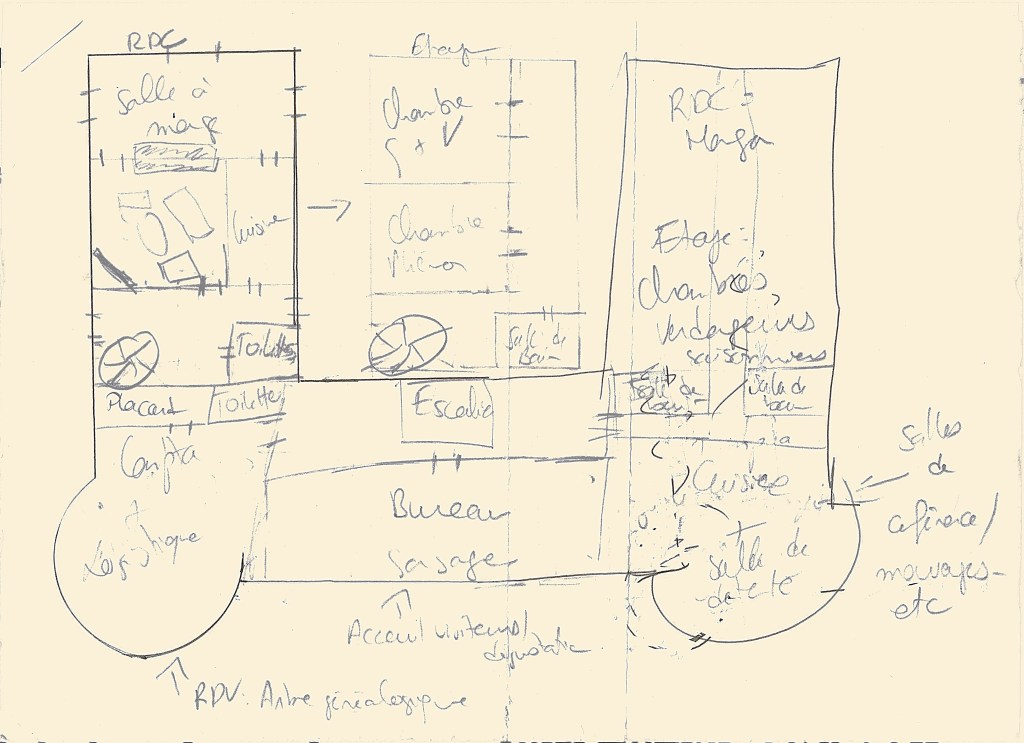 RDC
Salle à
mange
Cuisine
Toilettes
Placard
Toilettes
Compta
+
Logistique
Etage
Chambre
G + V
Chambre
Salle de
Bain
Escalie
Bureau
Accueil visiteurs/
dégustatio
RDV: Arbre généalogique
RDC:
Etage:
Chambres,
saisonniers
Salle de
bain
Salle de
bain
Cuisine
+
Salle de
détente
Salles
de
etc